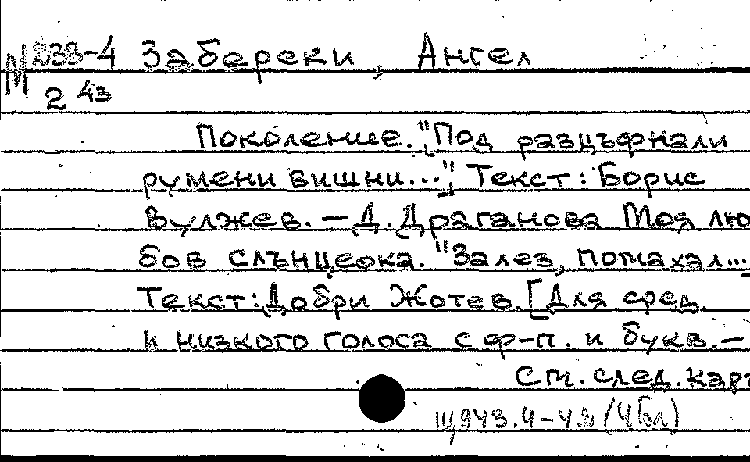 М 233-4 Забереки, Ангел
2 43
Поколение. "Под разцъфнали
румени вишни..."; Текст: Борис
Вулжев. – Д. Драганова Моя лю
бов слънцеока. "Залез, помахал...
Текст: Добри Жотев. [Для сред.
и низкого голоса с ф-п. и букв. –
См. след. карт
Щ943.4-4.8 (4Бл)